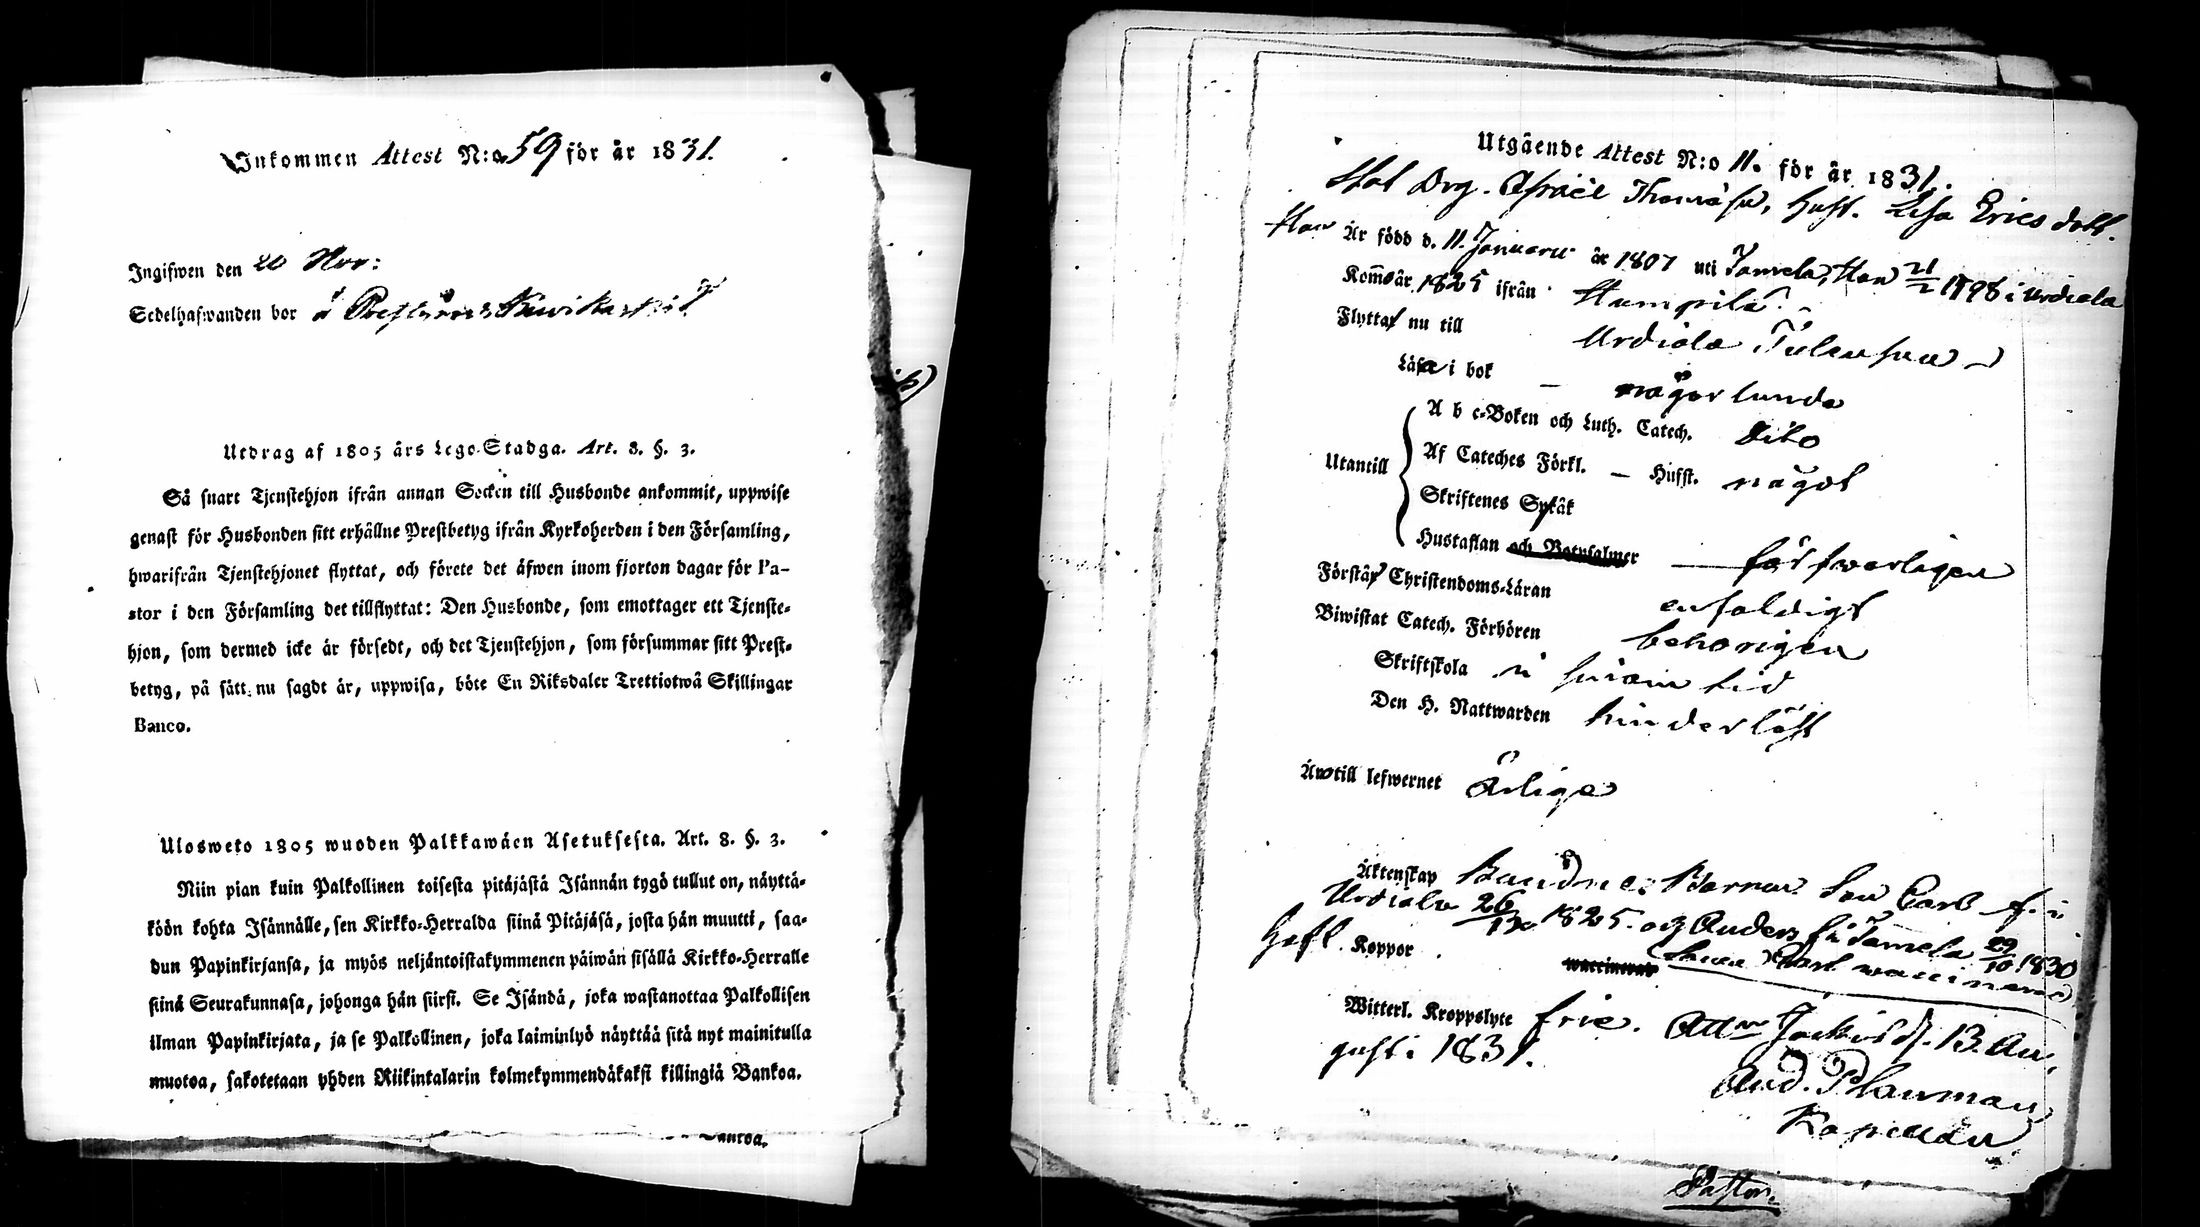 Inkommen Attest N:o 59 för år 1831.
Ingifwen den 20 Nov:
Sedelhafwanden bor å
Utdrag af 1805 års Lego-Stadga. Art. 8. §. 3.
Så snart Tjenstehjon ifrån annan Socken till Husbonde ankommit, uppwise
genast för Husbonden sitt erhållne Prestbetyg ifrån Kyrkoherden i den Församling,
hwarifrån Tjenstehjonet flyttat, och förete det äfwen inom fjorton dagar för Pa-
stor i den Församling det tillflyttat: Den Husbonde, som emottager ett Tjenste-
hjon, som dermed icke är försedt, och det Tjenstehjon, som försummar sitt Prest-
betyg, på sätt nu sagdt är, uppwisa, böte En Riksdaler Trettiotwå Skillingar
Banco.
Ulosweto 1805 wuoden Palkkawäen Asetuksesta. Art. 8. §. 3.
Niin pian kuin Palkollinen toisesta pitäjästä Isännän tygö tullut on, näyttä-
köön kohta Isännälle, sen Kirkko-Herralda siinä Pitäjäsä, josta hän muutti, saa-
dun Papinkirjansa, ja myös neljäntoistakymmenen päiwän sisällä Kirkko-Herralle
siinä Seurakunnasa, johonga hän siirsi. Se Isändä, joka wastanottaa Palkollisen
ilman Papinkirjata, ja se Palkollinen, joka laiminlyö näyttää sitä nyt mainitulla
muotoa, sakotetaan yhden Riikintalarin kolmekymmendäkaksi killingiä Bankoa.
Utgående Attest N:o 11. för år 1831.
Drg. Thomasn, Hust. Lisa Ericsdott.
Är född d. 11. Januarii år 1807 uti Tamela, Hon 21/2 1798 i Urdiala
Kom år 1825 ifrån Humpila
Flytta nu till Urdiala
Läsa i bok – någorlunda
Utantill
A b c-Boken och Luth. Catech. dito
Af Cateches Förkl. – Husst. något
Skriftenes Språk
Hustaflan och Botpsalmer – förswarligen
Förstå Christendoms-Läran enfaldigt
Biwistat Catech. Förhören behörigen
Skriftskola i sinom tid
Den H. Nattwarden hinderlöst
Till lefwernet ärlige
Äktenskap Barnen Son Carl f. i
Urdiala 26/12 1825. och Anders f. i Tamela 29/10 1830
Hust. Koppor waccinerad waccinerad
Witterl. Kroppslyte frie. Jockis d. 13. Au-
gusti 1831.
And. Plauman
Kapellan
Pastor.